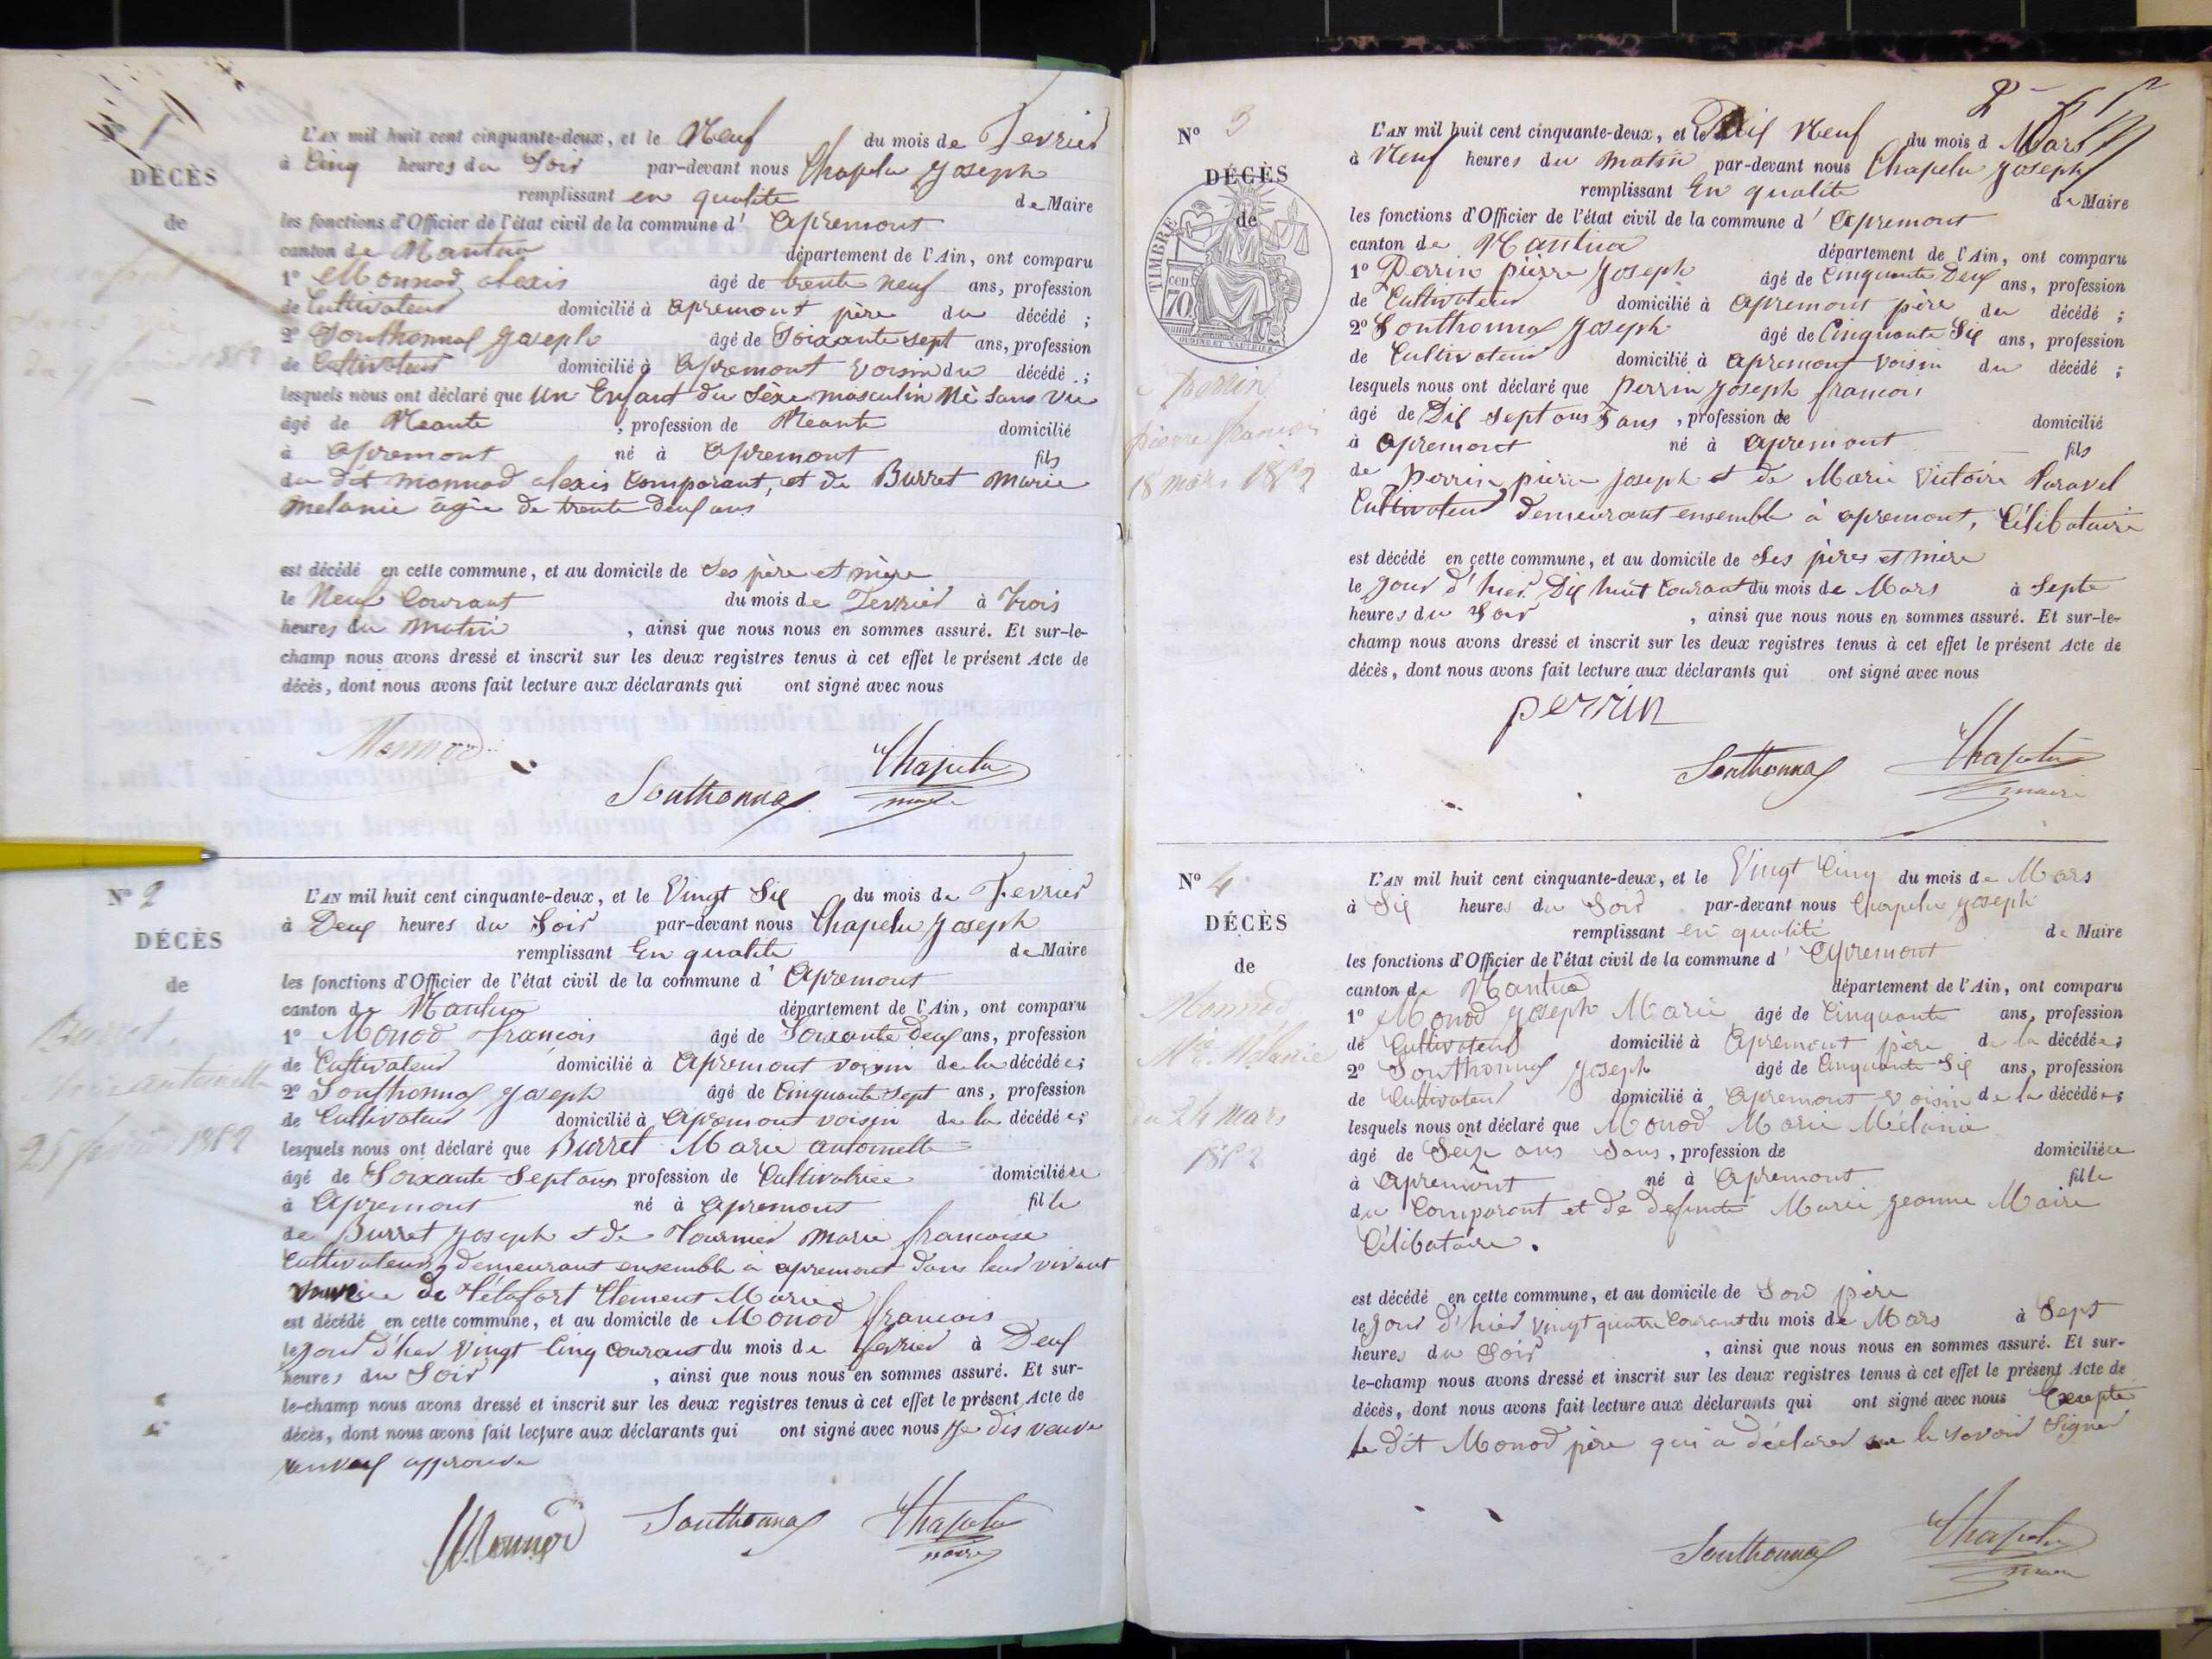 DÉCÈS
de
L'AN mil huit cent cinquante-deux, et le Neuf du mois de Fevrier
à Cinq heures du Soir par-devant nous Chapelu Joseph
remplissant en qualite de Maire
les fonctions d'Officier de l'état civil de la commune d' apremont
canton de Nantua département de l'Ain, ont comparu
1° Monnod alexis âgé de trente neuf ans, profession
de Cultivateur domicilié à apremont père du décédé ;
2° Sonthonnax Joseph âgé de Soixante sept ans, profession
de Cultivateur domicilié à apremont voisin du décédé ;
lesquels nous ont déclaré que un Enfant du Sèxe masculin Nè sans vie
âgé de Neante , profession de Neante domicilié
à apremont né à apremont fils
du dit monnod alexis Comparant, et de Burret marie
melanie âgèe de trente deux ans
est décédé en cette commune, et au domicile de ses père et mère
le Neuf Courant du mois de Fevrier à trois
heures du matin , ainsi que nous nous en sommes assuré. Et sur-le-
champ nous avons dressé et inscrit sur les deux registres tenus à cet effet le présent Acte de
décès, dont nous avons fait lecture aux déclarants qui ont signé avec nous
Monnod
Sonthonnax
Chapelu
maire
N° 2
DÉCÈS
de
Burret
Marie antoinette
25 fevrier 1852
L'AN mil huit cent cinquante-deux, et le Vingt Six du mois de Fevrier
à Deux heures du Soir par-devant nous Chapelu Joseph
remplissant En qualite de Maire
les fonctions d'Officier de l'état civil de la commune d' apremont
canton de Nantua département de l'Ain, ont comparu
1° Monod francois âgé de Soixante deux ans, profession
de Cultivateur domicilié à apremont voisin de la décédée;
2° Sonthonnax Joseph âgé de Cinquante sept ans, profession
de Cultivateur domicilié à apremont voisin de la décédée;
lesquels nous ont déclaré que Burret Marie antoinette
âgé de Soixante Sept ans profession de Cultivatrice domiciliée
à apremont né à apremont fille
de Burret Joseph et de Tournier marie francoise
Cultivateurs demeurant ensemble à apremont dans leur vivant
veuve de Clement Marie
est décédé en cette commune, et au domicile de Monod francois
le Jour d'hier Vingt Cinq courant du mois de fevrier à Deux
heures du Soir , ainsi que nous nous en sommes assuré. Et sur-
le-champ nous avons dressé et inscrit sur les deux registres tenus à cet effet le présent Acte de
décès, dont nous avons fait lecture aux déclarants qui ont signé avec nous Je dis veuve
approuve
Monnod
Sonthonnax
Chapelu
maire
2
N° 3
DÉCÈS
de
TIMBRE
70
Perrin
pierre francois
18 mars 1852
L'AN mil huit cent cinquante-deux, et le Dix Neuf du mois d Mars
à Neuf heures du matin par-devant nous Chapelu Joseph
remplissant En qualite de Maire
les fonctions d'Officier de l'état civil de la commune d' apremont
canton de Nantua département de l'Ain, ont comparu
1° Perrin pierre Joseph âgé de Cinquante Deux ans, profession
de Cultivateur domicilié à apremont père du décédé ;
2° Sonthonnax Joseph âgé de Cinquante Six ans, profession
de Cultivateur domicilié à apremont voisin du décédé ;
lesquels nous ont déclaré que perrin Joseph francois
âgé de Dix Sept ans Sans , profession de domicilié
à apremont né à apremont fils
de Perrin pierre Joseph et de Marie Victoire Paravel
Cultivateur demeurant ensemble à apremont, Célibataire
est décédé en cette commune, et au domicile de Ses pères et mère
le Jour d'hier Dix huit Courant du mois de Mars à Septe
heures du Soir , ainsi que nous nous en sommes assuré. Et sur-le-
champ nous avons dressé et inscrit sur les deux registres tenus à cet effet le présent Acte de
décès, dont nous avons fait lecture aux déclarants qui ont signé avec nous
perrin
Sonthonnax
Chapelu
maire
N° 4
DÉCÈS
de
Monnod
Mie Mélanie
24 mars
1852
L'AN mil huit cent cinquante-deux, et le Vingt Cinq du mois de Mars
à Six heures du Soir par-devant nous Chapelu Joseph
remplissant en qualité de Maire
les fonctions d'Officier de l'état civil de la commune d' apremont
canton de Nantua département de l'Ain, ont comparu
1° Monod Joseph Marie âgé de Cinquante ans, profession
de Cultivateur domicilié à apremont père de la décédée;
2° Sonthonnax Joseph âgé de Cinquante Six ans, profession
de Cultivateur domicilié à apremont voisin de la décédée;
lesquels nous ont déclaré que Monod Marie Mélanie
âgé de Seize ans Sans , profession de domiciliée
à apremont né à apremont fille
du Comparant et de defunte Marie Jeanne Maire
Célibataire.
est décédé en cette commune, et au domicile de Son père
le Jour d'hier vingt quatre Courant du mois de Mars à Sept
heures du Soir , ainsi que nous nous en sommes assuré. Et sur-
le-champ nous avons dressé et inscrit sur les deux registres tenus à cet effet le présent Acte de
décès, dont nous avons fait lecture aux déclarants qui ont signé avec nous Excepte
le dit Monod père qui a déclarer ne le savoir Signer
Sonthonnax
Chapelu
maire